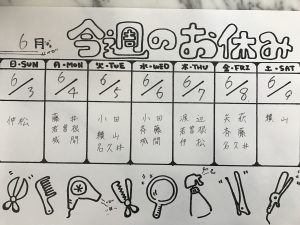 6月
今週のお休み
日・SUN 月・MON 火・TUE 水・WED 木・THU 金・FRI 土・SAT
6/3 6/4 6/5 6/6 6/7 6/8 6/9
伊松 藤井 小田 小田 渡辺 矢萩 横山
若曽根 横山 斉藤 若曽根 斉藤
成間 名久井 成間 伊松 名久井